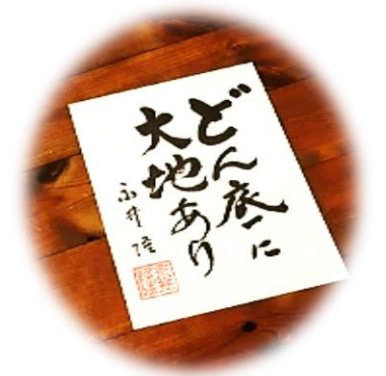 どん底に
大地あり
永井隆